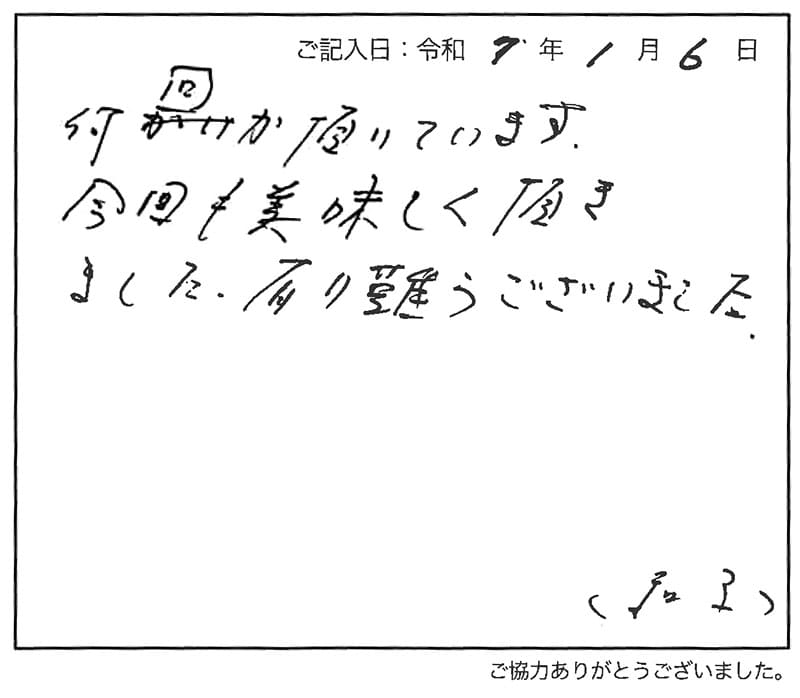 ご記入日：令和 7 年 1 月 6 日
何回か頂いています.
今回も美味しく頂き
ました. 有り難うございました.
ご協力ありがとうございました。